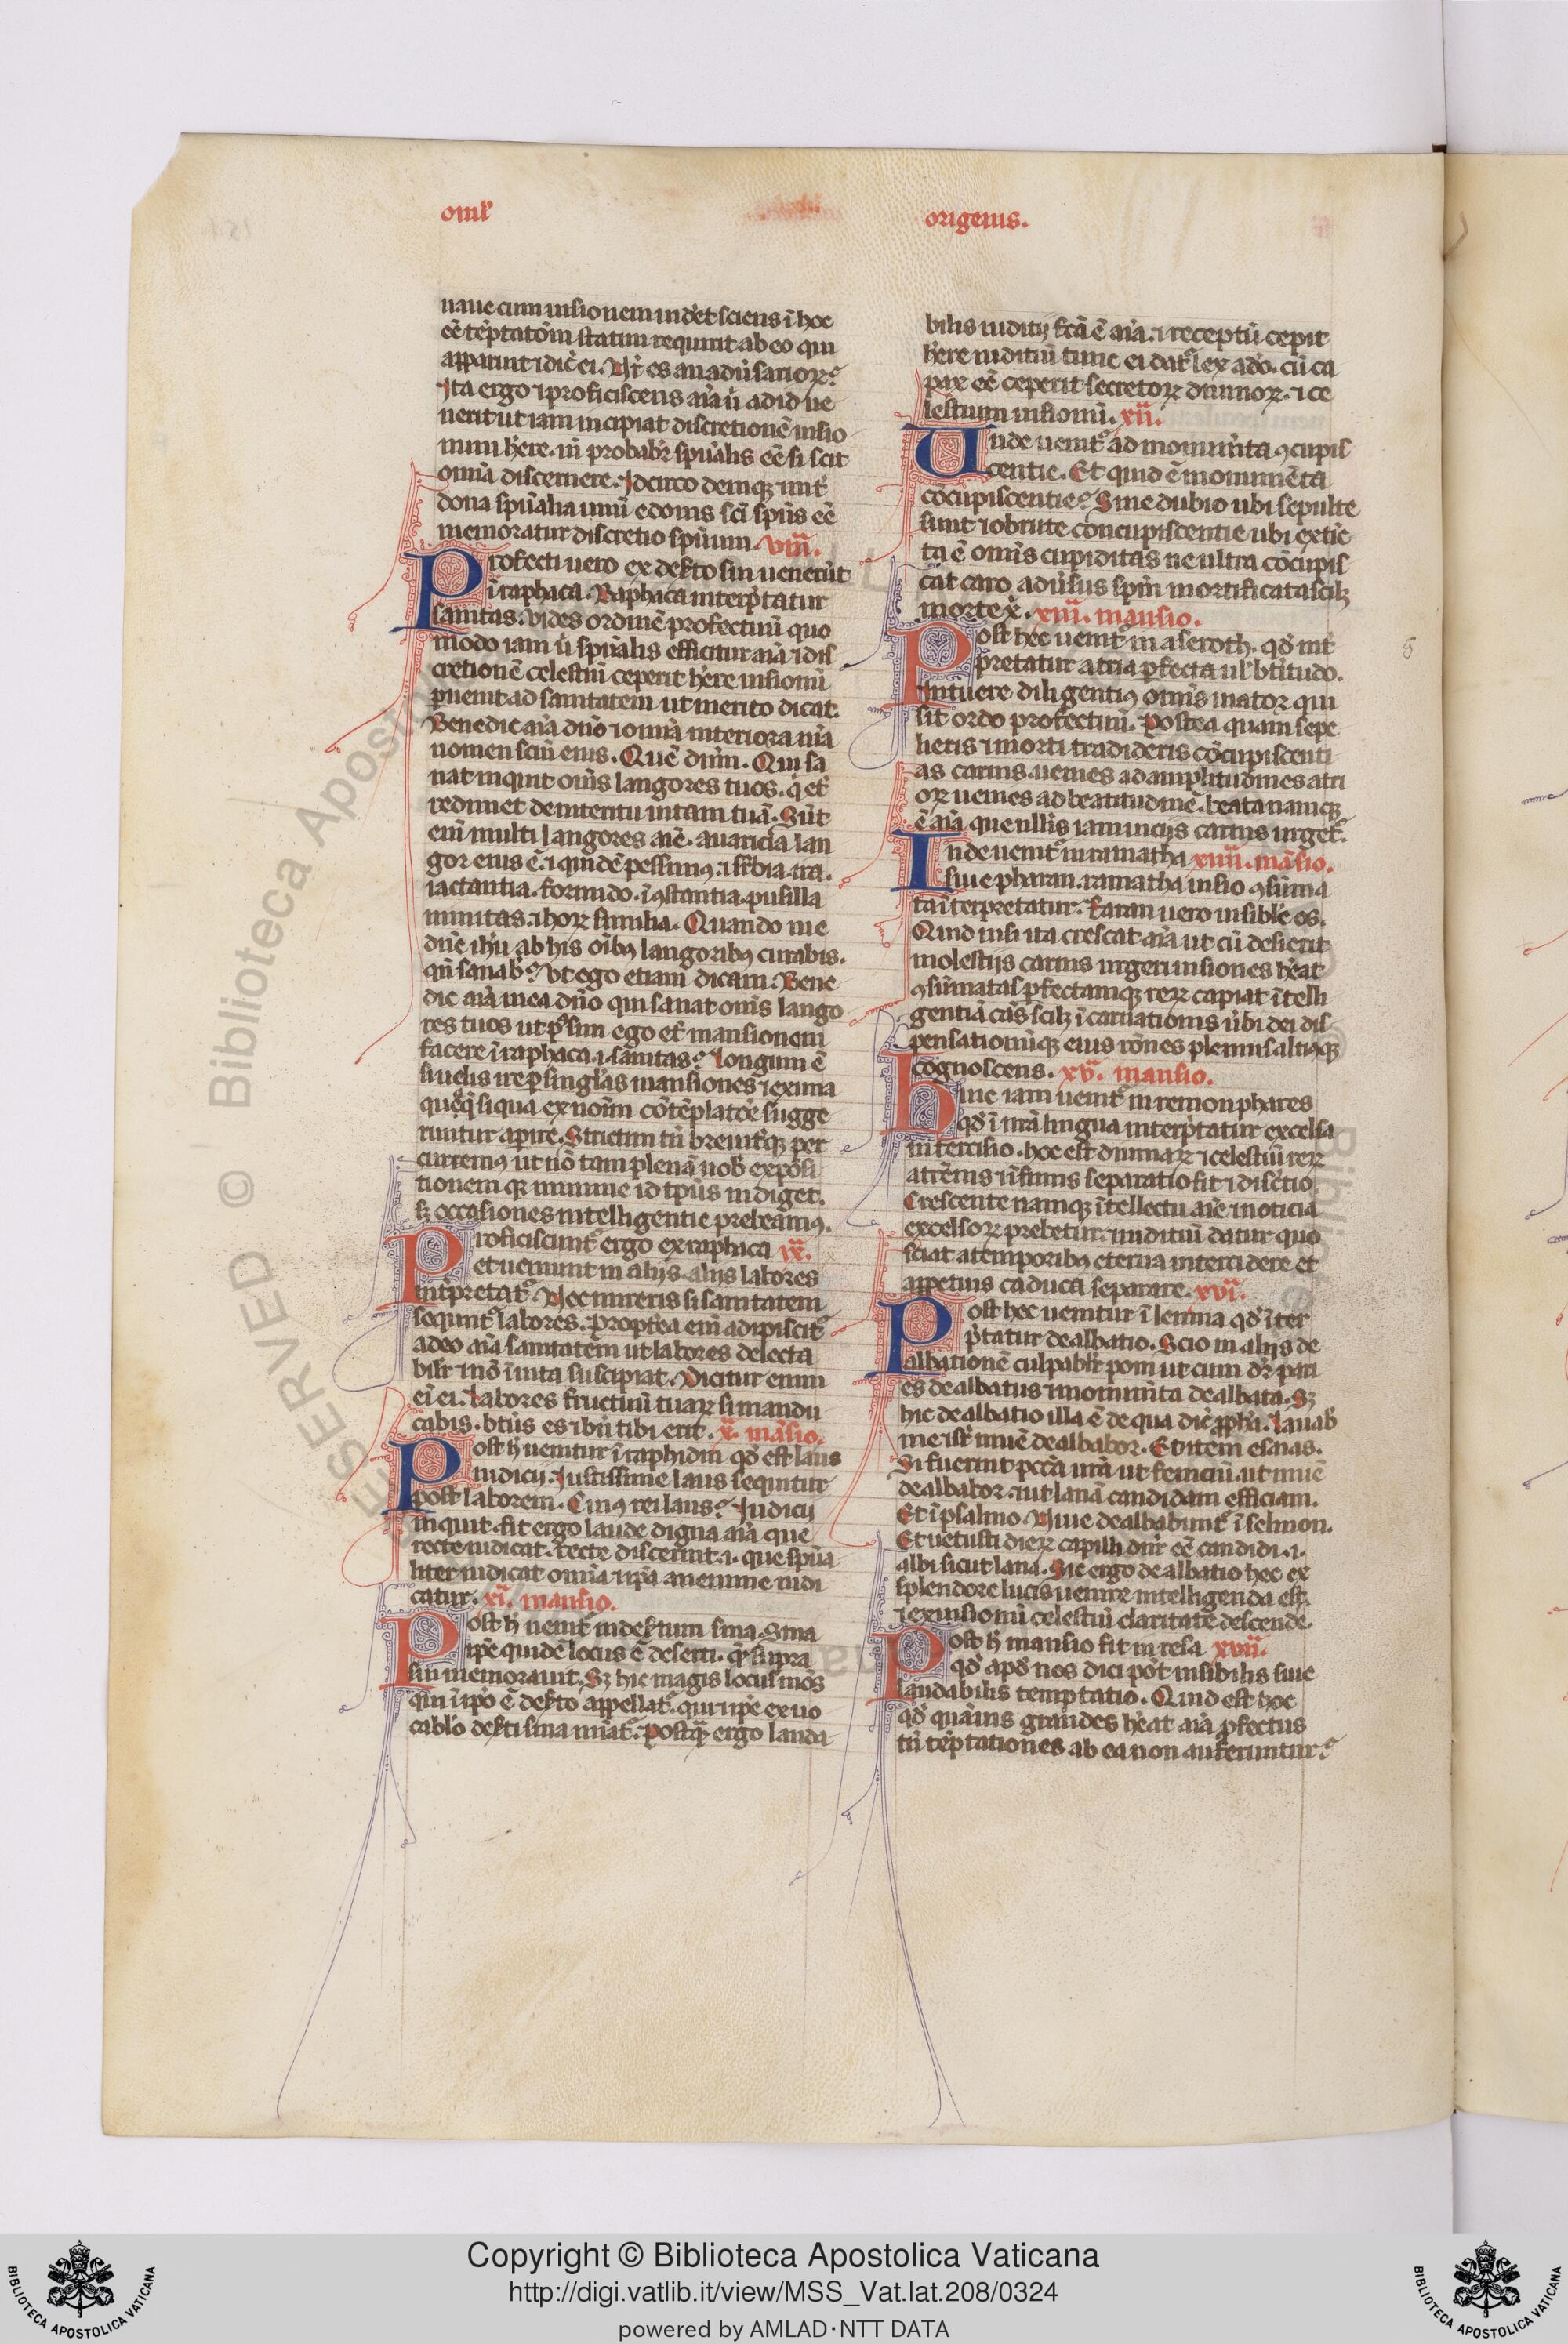 omł'
origenis.
naue cum uisionem uidet sciens ĩ hoc
eẽ tẽptatõm statim requirit ab eo qui
apparuit ⁊ dic̃ ei. Nr̃ es an adũsarioꝝ?
Ita ergo ⁊ proficiscens aĩa ũ ad id ue
nerit ut iam incipiat discretionẽ uisio
num h̃ere. in probabr̃ spũalis eẽ si scit
omĩa discernere. Idcirco deniqꝫ int̃
dona spũalia unũ e donis sc̃i spũs eẽ
memoratur discretio spũum. viii.
Profecti uero ex deẜto sin uenerũt
ĩ raphaca. Raphaca interp̃tatur
sanitas. Vides ordinẽ profectuũ quo
modo iam ũ spũalis efficitur aĩa ⁊ dis
cretionẽ celestiũ ceperit h̃ere uisionũ
ꝑuenit ad sanitatem ut merito dicat.
Benedic aĩa dño ⁊ omĩa interiora m̃a
nomen scm̃ eius. Quẽ dnm̃. Qui sa
nat inquit om̃s langores tuos. q̃ et
redimet de interitu uitam tuã. Sũt
eñi multi langores aĩe. auaricia lan
gor eius ẽ. ⁊ quidẽ pessimꝰ. ⁊ suꝑbia. ira.
iactantia. formido. ĩꝯstantia. pusilla
nimitas. ⁊ hoꝝ similia. Quando me
dñe ihũ ab his oĩbꝰ langoribꝰ curabis.
qñ sanab̃? Vt ego etiam dicam. Bene
dic aĩa mea dño qui sanat om̃s lango
res tuos ut p̃ sim ego et mansionem
facere ĩ raphaca .i. sanitas? Longum ẽ
si uelis ire ꝑ singl'as mansiones ⁊ ex una
queqꝫ si qua ex noĩm cõtẽplatõe sugge
runtur apire. Strictim tñ breuit̃qꝫ per
curremꝰ ut nõ tam plenã uob̃ expõsi
tionem qꝫ minime id tp̃us indiget.
sꝫ occasiones intelligentie prebeamꝰ.
Proficiscunt̃ ergo ex raphaca ix.
et ueniunt in alijs. alijs labores
int̃pretat̃. Nec mireris si sanitatem
sequunt̃ labores. propt̃ea eñi adipiscit̃
adeo aĩa sanitatem ut labores delecta
bilit̃ ⁊ nõ ĩuita suscipiat. Dicitur enim
eñi ei. Labores fructuũ tuaꝝ si mandu
cabis. bt̃us es ⁊ bñ tibi erit. x. mãsio.
Post h̃ uenitur ĩ raphidin qd̃ est laus
iudicij. Justissime laus sequitur
post laborem. Cuiꝰ rei laus? Judicij
inquit. fit ergo laude digna aĩa que
recte iudicat. recte discernit .i. que spũa
liter iudicat omĩa ⁊ ip̃a a nemine iudi
catur. xi. mansio.
Post h̃ uenit̃ in deẜtum sina. Sina
ip̃e quidẽ locus ẽ deserti. qꝫ supra
sin memorauit. Sꝫ hic magis locus mõs
qui ĩ ip̃o ẽ deẜto appellat̃. qui ⁊ ip̃e ex uo
cablo deẜti sina uũat̃. Postqꝫ ergo lauda
bilis iuditij fc̃ã ẽ aĩa. ⁊ receptũ cepit
h̃ere iuditiũ tunc ei dat̃ lex a do. cũ ca
pax eẽ ceperit secretoꝝ diuinoꝝ. ⁊ ce
lestium uisionũ. xii.
Unde uenit̃ ad monum̃ta ꝯcupis
centie. Et quid ẽ monumẽta
cõcupiscentie? Sine dubio ubi sepulte
sunt ⁊ obrute concupiscentie ubi extic̃
ta ẽ omĩs cupiditas ne ultra cõcupis
cat caro adũsus spm̃ mortificata scilꝫ
morte x̃. xiii. mansio.
Post hec uenit̃ in aseroth. qd̃ int̃
pretatur atria ꝑfecta ul' bt̃itudo.
Intuere diligentiꝰ omĩs uiator qui
sit ordo profectuũ. Postea quam sepe
lieris ⁊ morti tradideris cõcupiscenti
as carnis. uenies ad amplitudines atri
oꝝ uenies ad beatitudinẽ. beata namqꝫ
ẽ aĩa que ullis iam uicijs carnis urget̃.
Inde uenit̃ in ramatha xiiii. mãsio.
siue pharan. ramatha uisio ꝯsũma
ta ĩterpretatur. Faran uero uisibile os.
Quid nisi ita crescat aĩa ut cũ desierit
molestijs carnis urgeri uisiones h̃eat
ꝯsũmatas ꝑfectamqꝫ reꝝ capiat ĩtelli
gentiã cãs scilꝫ ĩcarnationis ũbi dei dis
pensationũqꝫ eius rõnes plenius altiꝰqꝫ
cognoscens. xv. mansio.
Hinc iam uenit̃ in remon phares
qd̃ ĩ nr̃a lingua interp̃tatur excelsa
intercisio. hoc est diuinaꝝ ⁊ celestiũ reꝝ
a tr̃enis ⁊ ĩfimis separatio fit ⁊ discretio
Crescente namqꝫ ĩtellectu aĩe ⁊ noticia
excelsoꝝ prebetur ⁊ iuditiũ datur quo
sciat a temporibꝰ eterna intercidere et
a ppetuis caduca separare. xvi.
Post hec uenitur ĩ lemna qd̃ ĩter
p̃tatur dealbatio. Scio in alijs de
albationẽ culpabilr̃ poni ut cum dr̃ pari
es dealbatus ⁊ monum̃ta dealbata. Sꝫ
hic dealbatio illa ẽ de qua dic̃ ꝓph̃a. Lauab̃
me ⁊ sr̃ niuẽ dealbabor. Et item esaias.
Si fuerint pcc̃ã ur̃a ut feniciũ. ut niuẽ
dealbabor. ⁊ ut lanã candidam efficiam.
Et ĩ psalmo. Niue dealbabunt̃ ĩ selmon.
Et uetusti dieꝝ capilli dnr̃ eẽ candidi .i.
albi sicut lana. Sic ergo dealbatio hec ex
splendore lucis uenire intelligenda est.
⁊ ex uisionũ celestiũ claritate descende
Post h̃ mansio fit in resa xvii.
qd̃ apd̃ nos dici pot̃ uisibilis siue
laudabilis temptatio. Quid est hoc
qd̃ quãuis grandes h̃eat aĩa ꝓfectus
tñ tẽptationes ab ea non auferuntur?
Copyright © Biblioteca Apostolica Vaticana
http://digi.vatlib.it/view/MSS_Vat.lat.208/0324
powered by AMLAD·NTT DATA